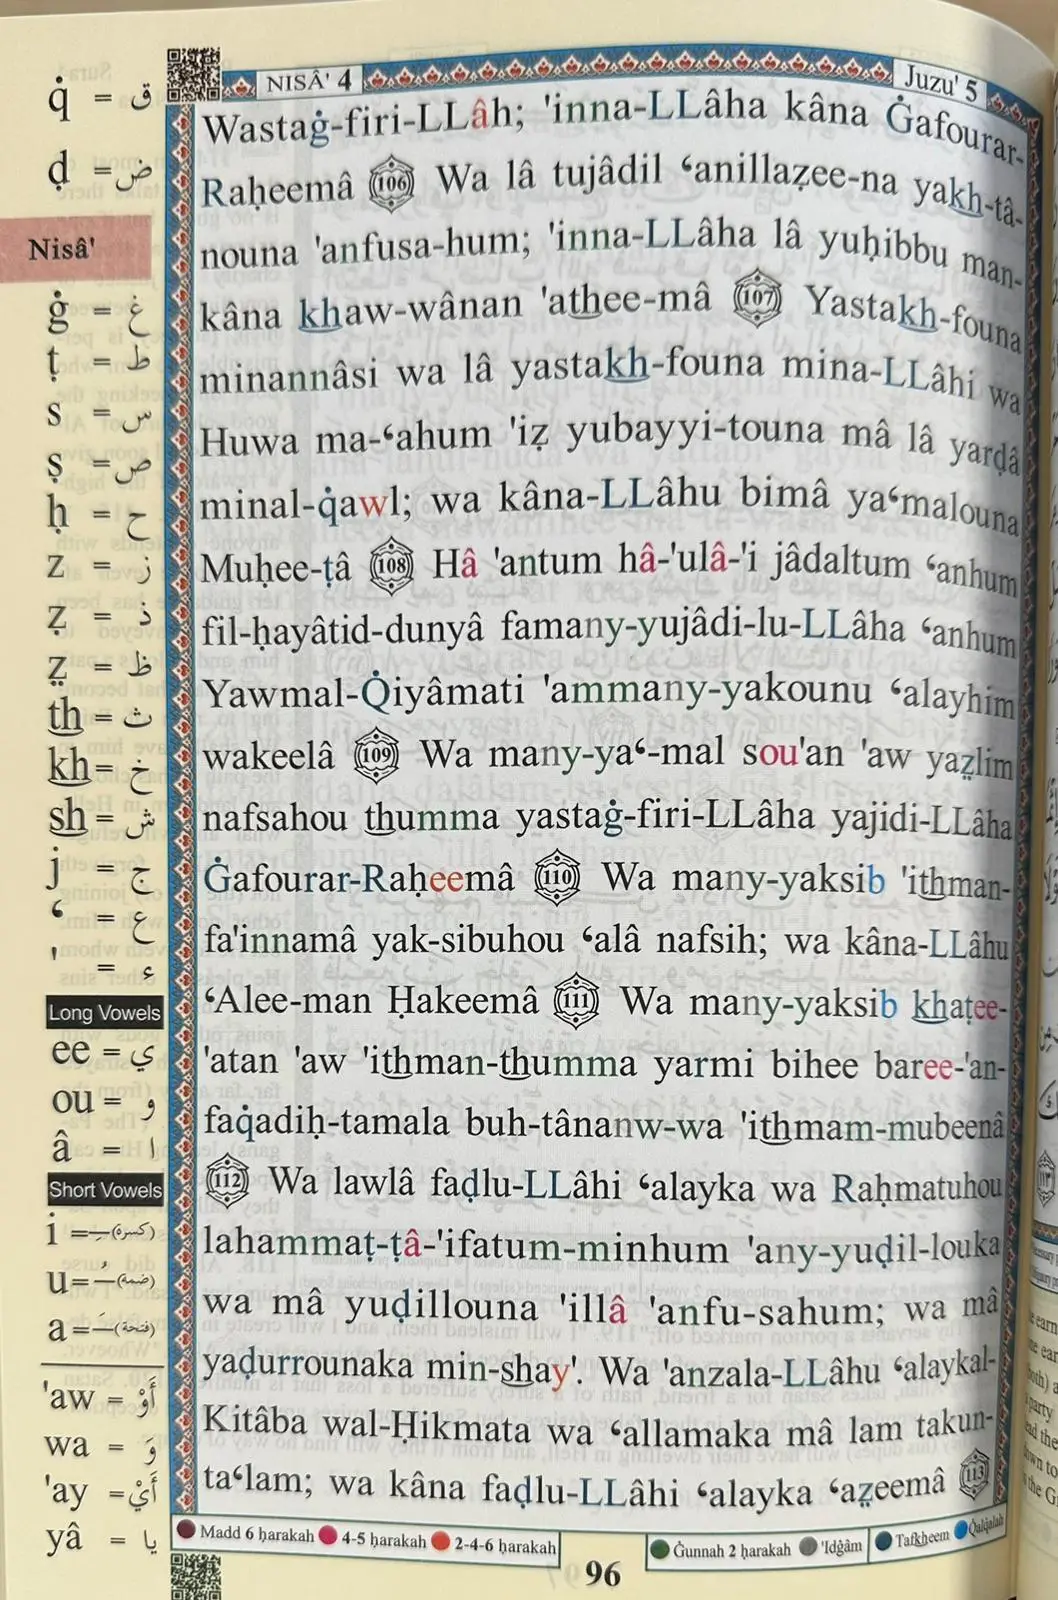 NISÂ' 4
Juzu' 5
Wastaġ-firi-LLâh; 'inna-LLâha kâna Ġafourar-
Raḥeemâ 106 Wa lâ tujâdil ‘anillaẓee-na yakh-tâ-
nouna 'anfusa-hum; 'inna-LLâha lâ yuḥibbu man-
kâna khaw-wânan 'athee-mâ 107 Yastakh-founa
minannâsi wa lâ yastakh-founa mina-LLâhi wa
Huwa ma-‘ahum 'iẓ yubayyi-touna mâ lâ yarḍâ
minal-q̇awl; wa kâna-LLâhu bimâ ya‘malouna
Muḥee-ṭâ 108 Hâ 'antum hâ-'ulâ-'i jâdaltum ‘anhum
fil-ḥayâtid-dunyâ famany-yujâdi-lu-LLâha ‘anhum
Yawmal-Q̇iyâmati 'ammany-yakounu ‘alayhim
wakeelâ 109 Wa many-ya‘-mal sou'an 'aw yaẓ̤lim
nafsahou thumma yastaġ-firi-LLâha yajidi-LLâha
Ġafourar-Raḥeemâ 110 Wa many-yaksib 'ithman-
fa'innamâ yak-sibuhou ‘alâ nafsih; wa kâna-LLâhu
‘Alee-man Ḥakeemâ 111 Wa many-yaksib khaṭee-
'atan 'aw 'ithman-thumma yarmi bihee baree-'an-
faq̇adiḥ-tamala buh-tânanw-wa 'ithmam-mubeenâ
112 Wa lawlâ faḍlu-LLâhi ‘alayka wa Raḥmatuhou
lahammaṭ-ṭâ-'ifatum-minhum 'any-yuḍil-louka
wa mâ yuḍillouna 'illâ 'anfu-sahum; wa mâ
yaḍurrounaka min-shay'. Wa 'anzala-LLâhu ‘alaykal-
Kitâba wal-Ḥikmata wa ‘allamaka mâ lam takun-
ta‘lam; wa kâna faḍlu-LLâhi ‘alayka ‘aẓ̤eemâ 113
q̇ = ق
ḍ = ض
Nisâ'
ġ = غ
ṭ = ط
s = س
ṣ = ص
ḥ = ح
z = ز
ẓ = ذ
ẓ̤ = ظ
th = ث
kh = خ
sh = ش
j = ج
‘ = ع
' = ء
Long Vowels
ee = ي
ou = و
â = ا
Short Vowels
i = ـِ (كسرة)
u = ـُ (ضمة)
a = ـَ (فتحة)
'aw = أَوْ
wa = وَ
'ay = أَيْ
yâ = يا
Madd 6 ḥarakah 4-5 ḥarakah 2-4-6 ḥarakah
Ġunnah 2 ḥarakah 'Idġâm Tafkheem Q̇alq̇alah
96